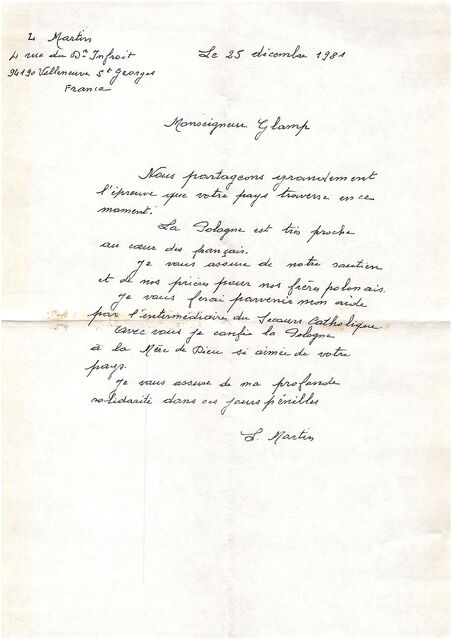 L Martin
4 rue du Dr Infroit
94190 Villeneuve St Georges
France
Le 25 décembre 1981
Monseigneur Glamp
Nous partageons grandement
l'épreuve que votre pays traverse en ce
moment.
La Pologne est très proche
au cœur des français.
Je vous assure de notre soutien
et de nos prières pour nos frères polonais.
Je vous ferai parvenir mon aide
par l'intermédiaire du Secours Catholique.
Avec vous je confie la Pologne
à la Mère de Dieu si aimée de votre
pays.
Je vous assure de ma profonde
solidarité dans ces jours pénibles
L. Martin